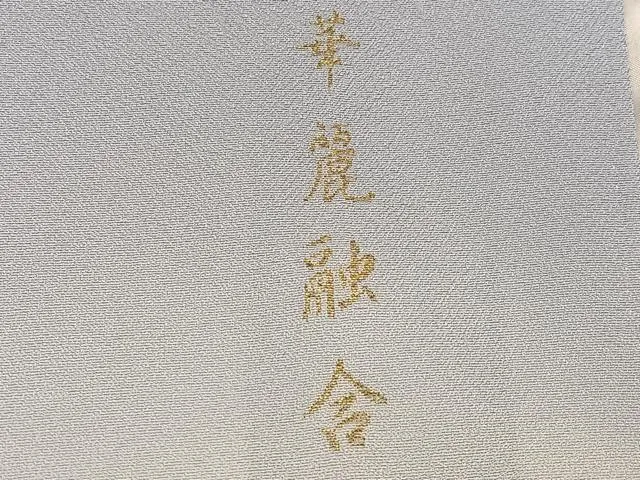 華麗融合